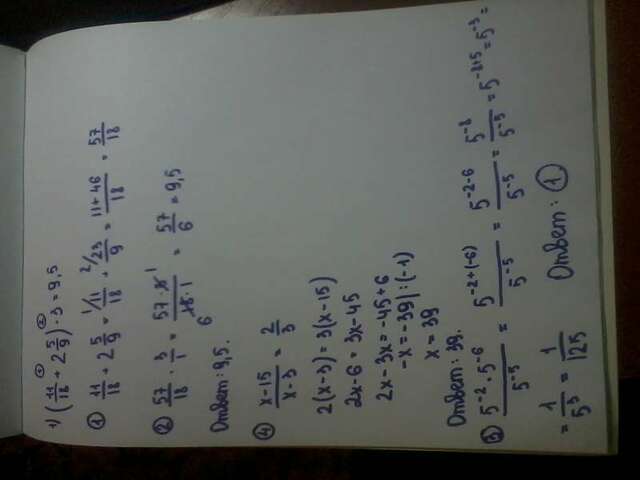 1) (11/18 + 2 5/9) · 3 = 9,5
① 11/18 + 2 5/9 = 11/18 + 23/9 = (11+46)/18 = 57/18
② 57/18 · 3/1 = (57·3)/(18·1) = 57/6 = 9,5
Ответ: 9,5.
④ (x-15)/(x-3) = 2/3
2(x-3) = 3(x-15)
2x-6 = 3x-45
2x-3x = -45+6
-x = -39 | :(-1)
x = 39
Ответ: 39.
③ (5⁻² · 5⁻⁶)/5⁻⁵ = 5⁻²⁺⁽⁻⁶⁾/5⁻⁵ = 5⁻²⁻⁶/5⁻⁵ = 5⁻⁸/5⁻⁵ = 5⁻⁸⁺⁵ = 5⁻³ =
= 1/5³ = 1/125 Ответ: ①